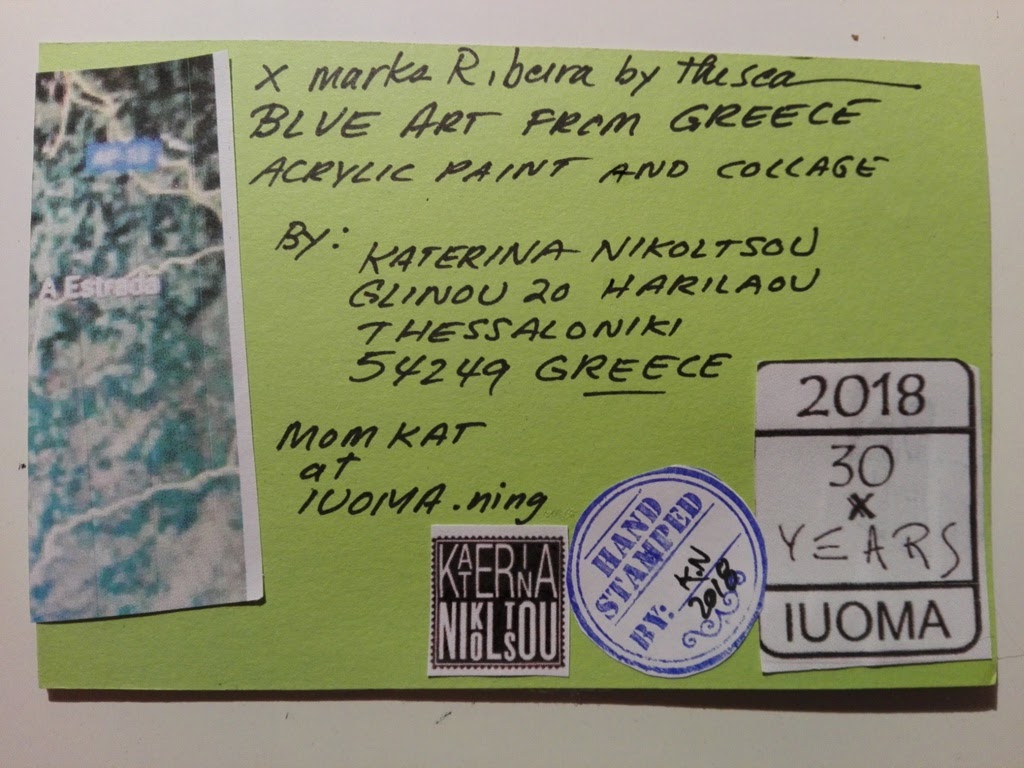 x marks Ribeira by the sea
BLUE ART FROM GREECE
ACRYLIC PAINT AND COLLAGE
BY:
KATERINA NIKOLTSOU
GLINOU 20 HARILAOU
THESSALONIKI
54249 GREECE
MOM KAT
at
IUOMA.ning
A Estrada
KATERINA
NIKOLTSOU
HAND
STAMPED
BY: K.N
2018
2018
30
X
YEARS
IUOMA